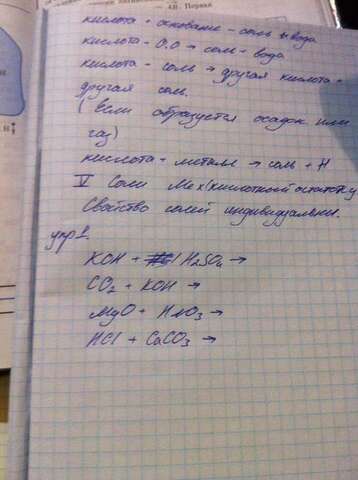 кислота + основание - соль + вода
кислота + О.О → соль + вода
кислота + соль → другая кислота +
другая соль.
(если образуется осадок или
газ)
кислота + металл → соль + H
V Соли Меx(кислотный остаток)y
Свойство солей индивидуальны.
упр 1.
KOH + H2SO4 →
CO2 + KOH →
MgO + HNO3 →
HCl + CaCO3 →